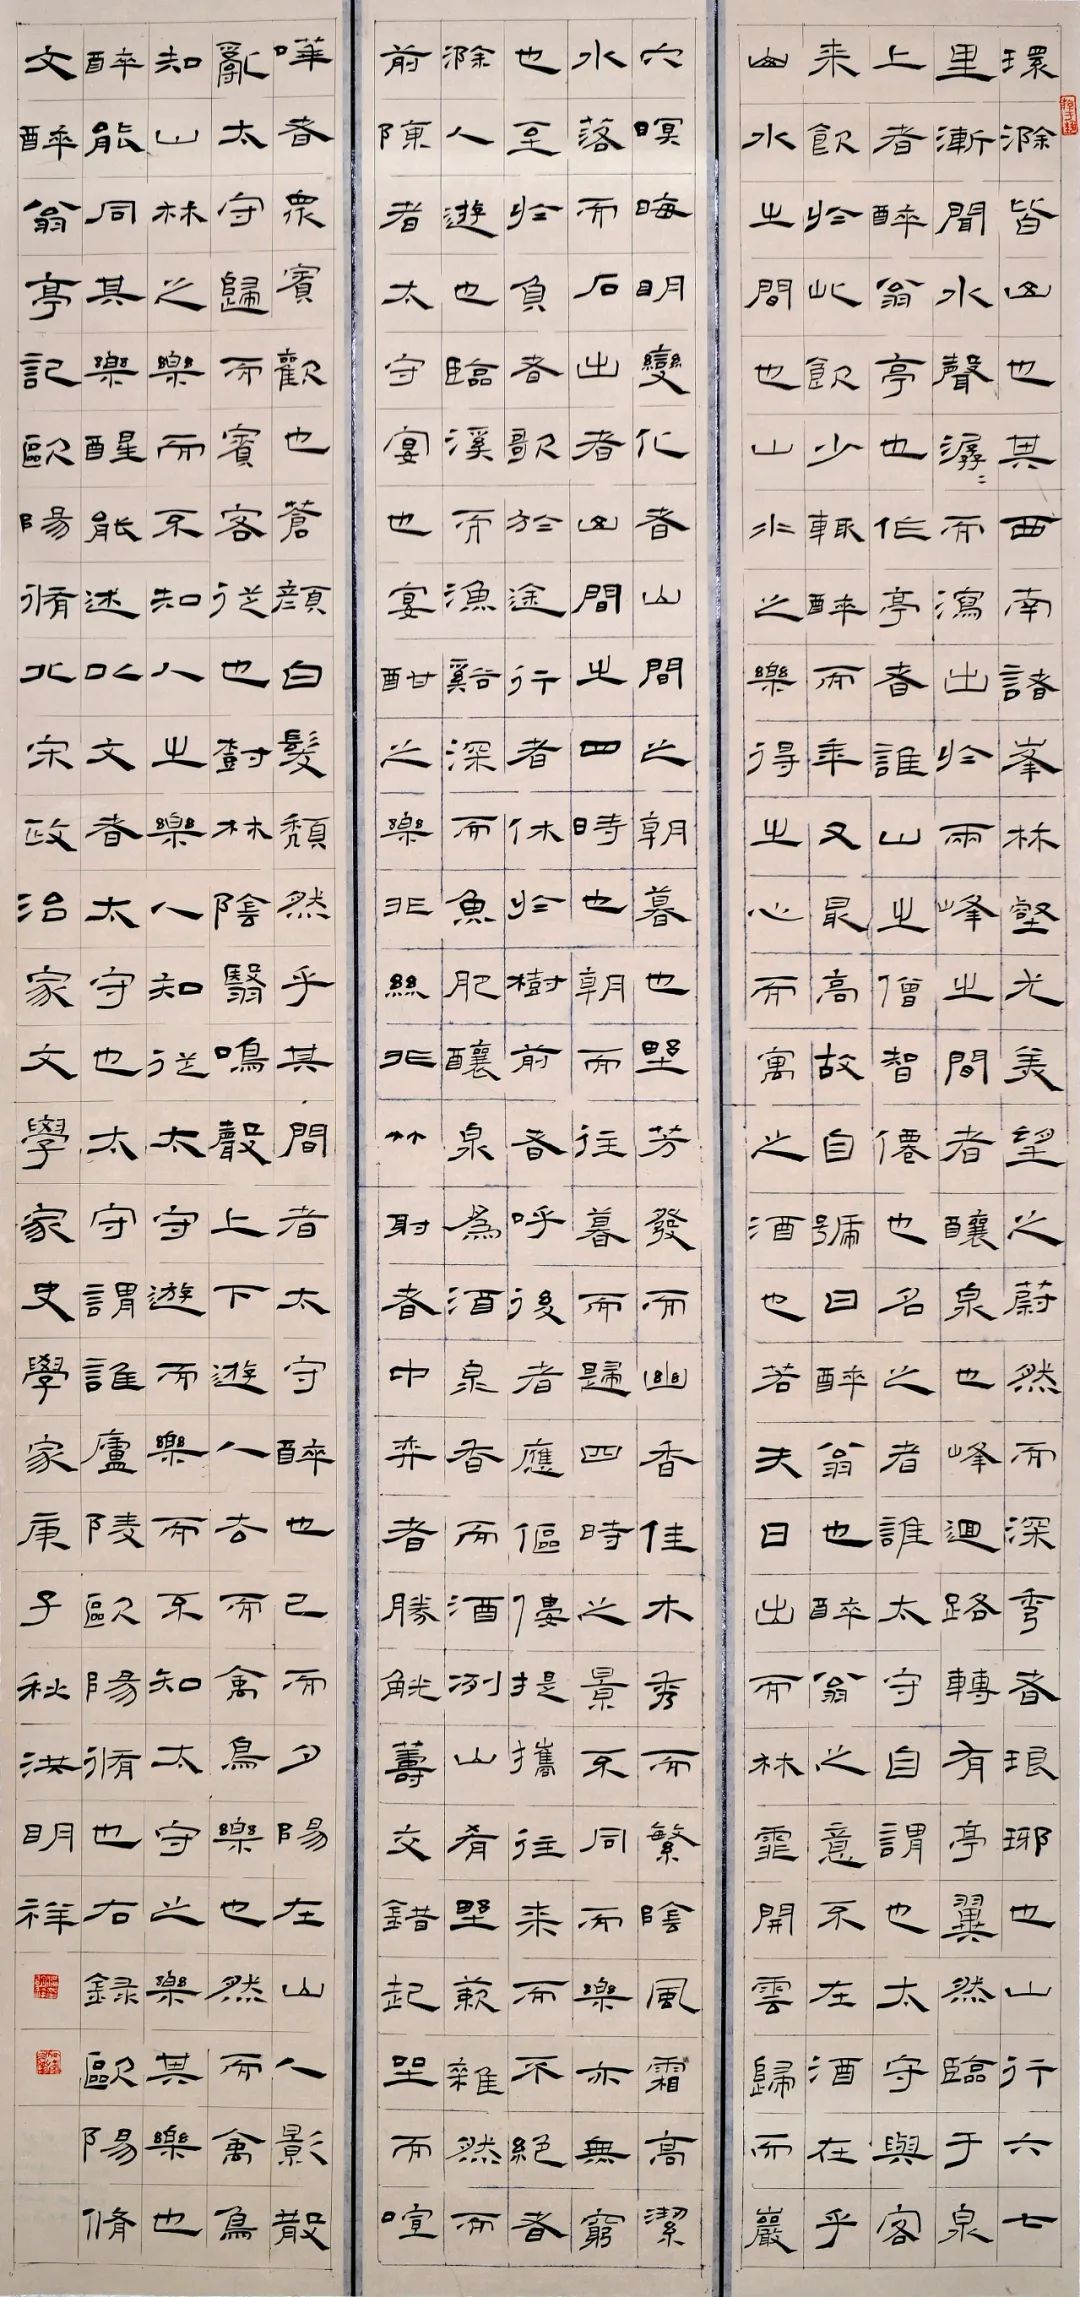 環滁皆山也其西南諸峯林壑尤美望之蔚然而深秀者琅琊也山行六七
里漸聞水聲潺〻而瀉出於兩峰之間者釀泉也峰迴路轉有亭翼然臨于泉
上者醉翁亭也作亭者誰山之僧智僊也名之者誰太守自謂也太守與客
来飲於此飲少輒醉而年又最高故自號曰醉翁也醉翁之意不在酒在乎
山水之間也山水之樂得之心而寓之酒也若夫日出而林霏開雲歸而巖
穴暝晦明變化者山間之朝暮也野芳發而幽香佳木秀而繁陰風霜高潔
水落而石出者山間之四時也朝而往暮而歸四時之景不同而樂亦無窮
也至於負者歌於途行者休於樹前者呼後者應傴僂提攜往来而不絕者
滁人遊也臨溪而漁谿深而魚肥釀泉為酒泉香而酒冽山肴野蔌雜然而
前陳者太守宴也宴酣之樂非絲非竹射者中弈者勝觥籌交錯起坐而喧
嘩者眾賓歡也蒼顏白髮頹然乎其間者太守醉也已而夕陽在山人影散
亂太守歸而賓客從也樹林陰翳鳴聲上下遊人去而禽鳥樂也然而禽鳥
知山林之樂而不知人之樂人知從太守遊而樂而不知太守之樂其樂也
醉能同其樂醒能述以文者太守也太守謂誰廬陵歐陽脩也右録歐陽脩
文醉翁亭記歐陽脩北宋政治家文學家史學家庚子秋洪明祥